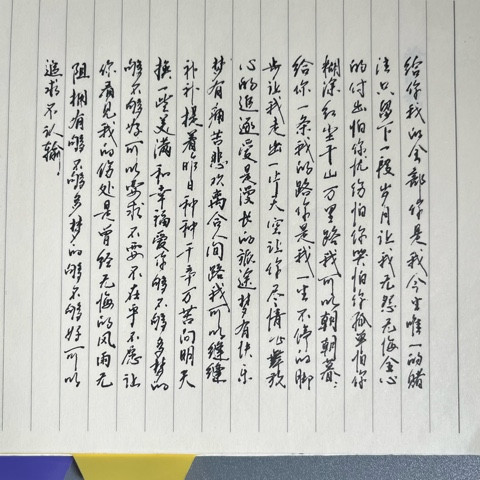 给你我的全部你是我今生唯一的赌
注只留下一段岁月让我无怨无悔全心
的付出怕你忧伤怕你哭怕你孤单怕你
糊涂红尘千山万里路我可以朝朝暮暮
给你一条我的路你是我一生不停的脚
步让我走出一片天空让你尽情飞舞放
心的追逐爱是漫长的旅途梦有快乐
梦有痛苦悲欢离合人间路我可以缝缝
补补提着昨日种种千辛万苦向明天
换一些美满和幸福爱你够不够多梦的
够不够好可以要求不要不在乎不愿让
你看见我的伤处是曾经无悔的风雨无
阻拥有够不够多梦的够不够好可以
追求不认输